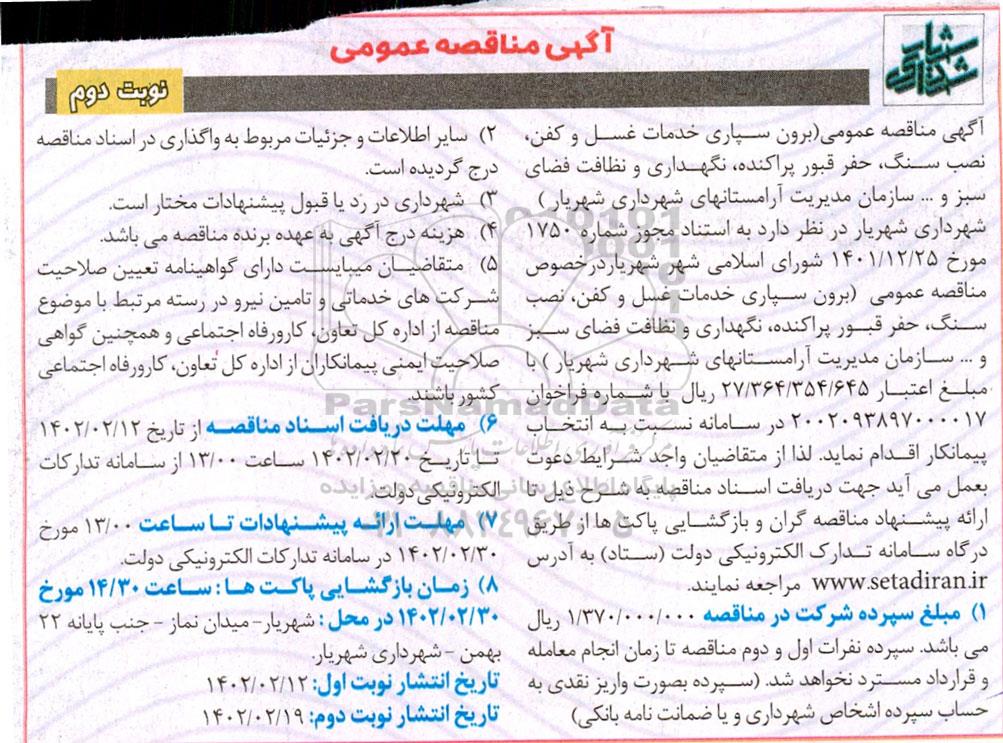 آگهی مناقصه عمومی
نوبت دوم
شهرداری
شهریار
آگهی مناقصه عمومی(برون سپاری خدمات غسل و کفن،
نصب سنگ، حفر قبور پراکنده، نگهداری و نظافت فضای
سبز و ... سازمان مدیریت آرامستانهای شهرداری شهریار )
شهرداری شهریار در نظر دارد به استناد مجوز شماره ۱۷۵۰
مورخ ۱۴۰۱/۱۲/۲۵ شورای اسلامی شهر شهریاردرخصوص
مناقصه عمومی (برون سپاری خدمات غسل و کفن، نصب
سنگ، حفر قبور پراکنده، نگهداری و نظافت فضای سبز
و ... سازمان مدیریت آرامستانهای شهرداری شهریار ) با
مبلغ اعتبار ۲۷/۳۶۴/۳۵۴/۶۴۵ ریال با شماره فراخوان
۲۰۰۲۰۹۳۸۹۷۰۰۰۰۱۷ در سامانه نسبت به انتخاب
پیمانکار اقدام نماید. لذا از متقاضیان واجد شرایط دعوت
بعمل می آید جهت دریافت اسناد مناقصه به شرح ذیل تا
ارائه پیشنهاد مناقصه گران و بازگشایی پاکت ها از طریق
درگاه سامانه تدارک الکترونیکی دولت (ستاد) به آدرس
www.setadiran.ir مراجعه نمایند.
۱) مبلغ سپرده شرکت در مناقصه ۱/۳۷۰/۰۰۰/۰۰۰ ریال
می باشد. سپرده نفرات اول و دوم مناقصه تا زمان انجام معامله
و قرارداد مسترد نخواهد شد. (سپرده بصورت واریز نقدی به
حساب سپرده اشخاص شهرداری و یا ضمانت نامه بانکی)
۲) سایر اطلاعات و جزئیات مربوط به واگذاری در اسناد مناقصه
درج گردیده است.
۳) شهرداری در رد یا قبول پیشنهادات مختار است.
۴) هزینه درج آگهی به عهده برنده مناقصه می باشد.
۵) متقاضیان میبایست دارای گواهینامه تعیین صلاحیت
شرکت های خدماتی و تامین نیرو در رسته مرتبط با موضوع
مناقصه از اداره کل تعاون، کارورفاه اجتماعی و همچنین گواهی
صلاحیت ایمنی پیمانکاران از اداره کل تعاون، کارورفاه اجتماعی
کشور باشند.
۶) مهلت دریافت اسناد مناقصه از تاریخ ۱۴۰۲/۰۲/۱۲
تا تاریخ ۱۴۰۲/۰۲/۲۰ ساعت ۱۳/۰۰ از سامانه تدارکات
الکترونیکی دولت.
۷) مهلت ارائه پیشنهادات تا ساعت ۱۳/۰۰ مورخ
۱۴۰۲/۰۲/۳۰ در سامانه تدارکات الکترونیکی دولت.
۸) زمان بازگشایی پاکت ها : ساعت ۱۴/۳۰ مورخ
۱۴۰۲/۰۲/۳۰ در محل : شهریار- میدان نماز - جنب پایانه ۲۲
بهمن - شهرداری شهریار.
تاریخ انتشار نوبت اول: ۱۴۰۲/۰۲/۱۲
تاریخ انتشار نوبت دوم: ۱۴۰۲/۰۲/۱۹
ParsNamadData
پایگاه اطلاع رسانی مناقصه و مزایده